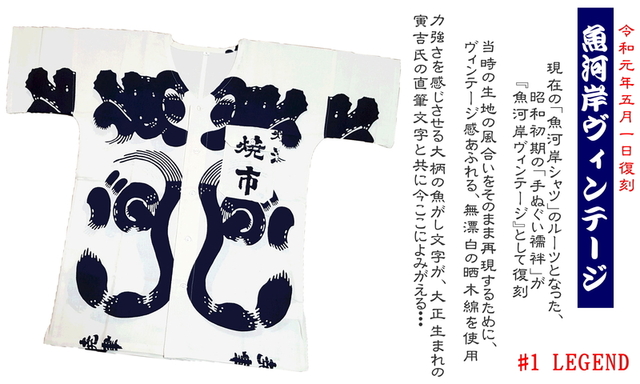 令和元年五月一日復刻
魚河岸ヴィンテージ
現在の「魚河岸シャツ」のルーツとなった、
昭和初期の「手ぬぐい襦袢」が
『魚河岸ヴィンテージ』として復刻
当時の生地の風合いをそのまま再現するために、
ヴィンテージ感あふれる、無漂白の晒木綿を使用
力強さを感じさせる大柄の魚がし文字が、大正生まれの
寅吉氏の直筆文字と共に今ここによみがえる・・・
#1 LEGEND
焼
市